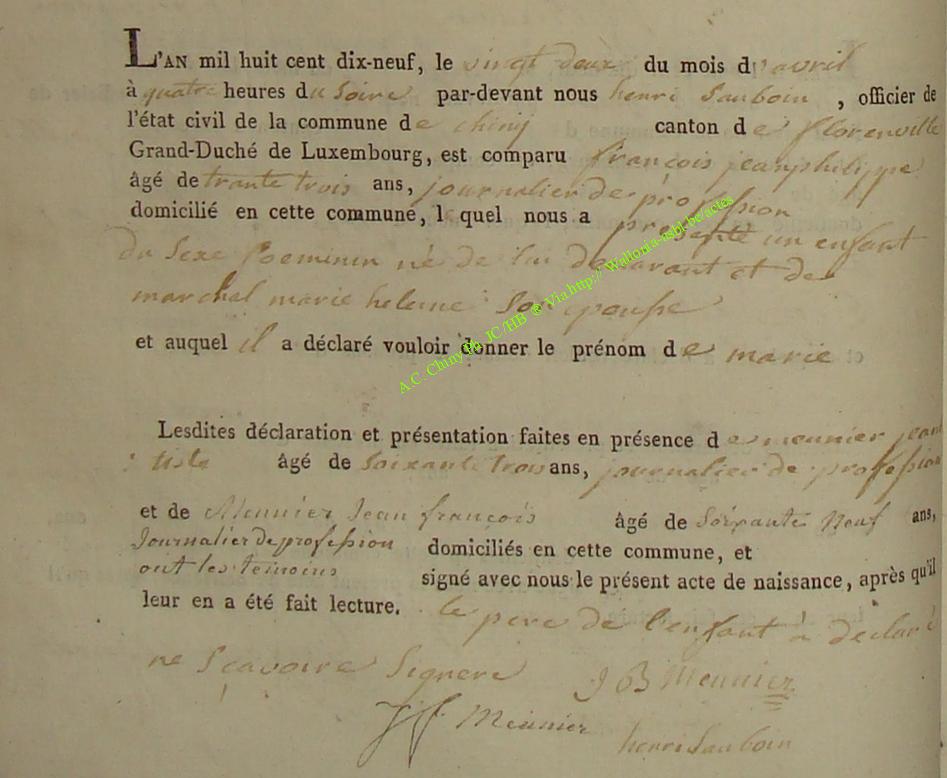 L'AN mil huit cent dix-neuf, le vingt deux du mois d'avril
à quatre heures du soire par-devant nous henri Sauboin, officier de
l'état civil de la commune de chinÿ canton de florenville
Grand-Duché de Luxembourg, est comparu françois jeanphilippe
âgé de trante trois ans, journalier de profession
domicilié en cette commune, lequel nous a présenté un enfant
du Sexe foeminin né de lui déclarant et de
marchal marie helene Son epouse
et auquel il a déclaré vouloir donner le prénom de marie
Lesdites déclaration et présentation faites en présence de meunier jean
tiste âgé de Soixante trois ans, journalier de profession
et de Meunier Jean françois âgé de Soixante Neuf ans,
Journalier de profession domiciliés en cette commune, et
ont les temoins signé avec nous le présent acte de naissance, après qu'il
leur en a été fait lecture. le pere de l'enfant à déclaré
ne Scavoire Signere J B Meunier
J f Meunier
henri Sauboin
A.C. Chiny Ph JC/HB @ Via http://Wallonia-asbl.be/actes